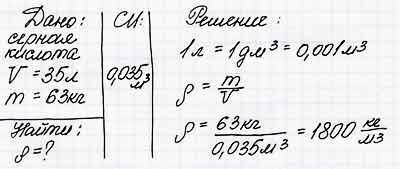 Дано:
серная
кислота
V = 35л
m = 63кг
Найти:
ρ = ?
СИ:
0,035
м³
Решение:
1л = 1дм³ = 0,001м³
ρ = m/V
ρ = 63кг/0,035м³ = 1800 кг/м³